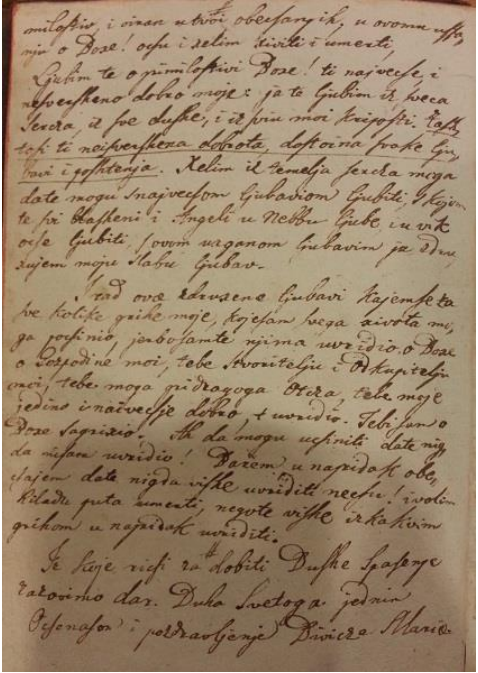 milostiv, i viran u tvoi obecsanjih, u ovomu uffa,
nju o Boxe! ocsu i xelim xiviti i umerti,
Ljubim te o primilostivi Boxe! ti najvecse, i
neisversheno dobro moje: ja te ljubim iz svega
Serdca, iz sve dushe, i iz sviu moi kriposti. Zasto,
tosi ti neisvershena dobrota, dostoina svake lju,
bavi i poshtenja. Xelim iz temelja serdca moga
date mogu snajvecsom ljubaviom ljubiti, s kojom
te svi blaxeni i Angeli u Nebbu ljube, i u vik
ocse ljubiti, s ovom uxganom ljubavim ja zdru,
xujem moju slabu ljubav.
I rad ove zdruxene ljubavi kajemse za
sve kolike grihe moje, kojesam svega xivota mo,
ga pocsinio, jerbosamte njima uvridio o Boxe
o Gospodine moi, tebe stvoritelju i Odkupitelju
moi, tebe moga pridragoga Otcza, tebe moje
jedino i naivecsje dobro uvridio. Tebisam o
Boxe sagrixio. Ah da mogu ucsiniti date nig,
da nisam uvridio! Barem u napridak obe,
csajem date nigda vishe uvriditi necsu! i volim
hiladu puta umerti, negote vishe izkakvim
grihom u napridak uvriditi.
Iz koje ricsi za dobiti Dushe Spasenje
zazovimo dar Duha Svetoga jednim
Ocsenasom i pozdravljenje Divicze Marie.